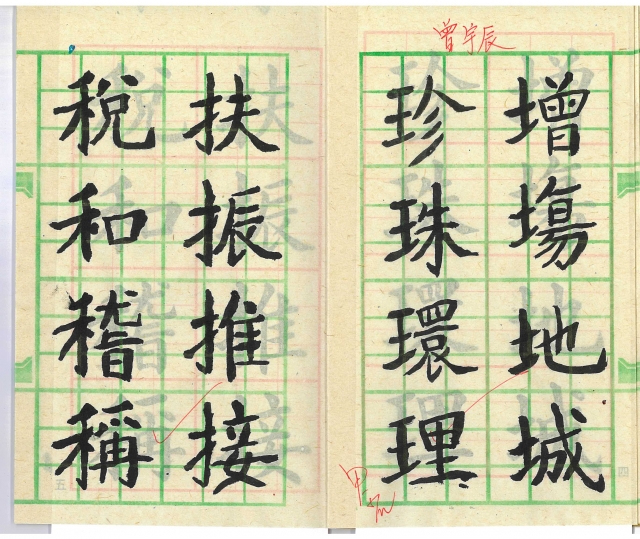 曾宇辰
增塲地城
珍珠環理
甲
扶振推接
稅和稽稱
四
五